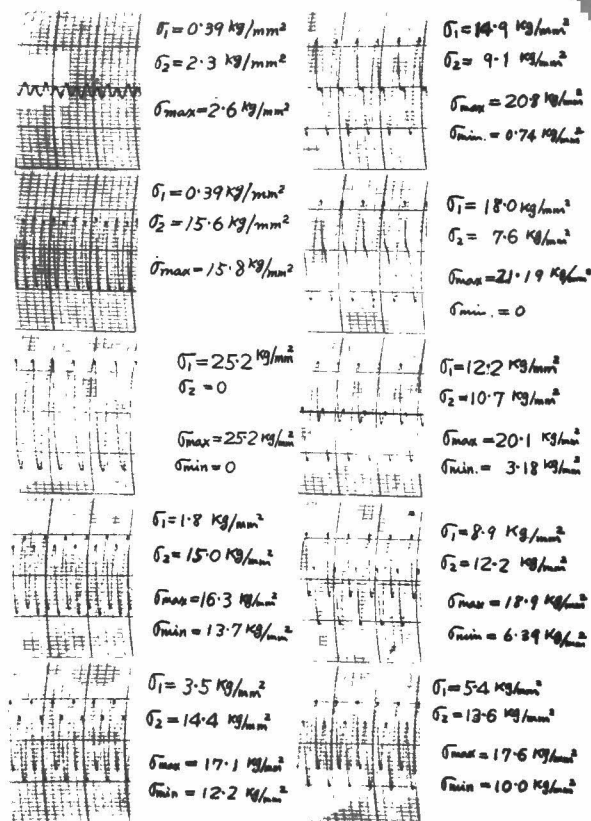 σ₁=0·39 kg/mm²
σ₂=2·3 kg/mm²
σmax=2·6 kg/mm²
σ₁=0·39 kg/mm²
σ₂=15·6 kg/mm²
σmax=15·8 kg/mm²
σ₁=25·2 kg/mm²
σ₂=0
σmax=25·2 kg/mm²
σmin=0
σ₁=1·8 kg/mm²
σ₂=15·0 kg/mm²
σmax=16·3 kg/mm²
σmin=13·7 kg/mm²
σ₁=3·5 kg/mm²
σ₂=14·4 kg/mm²
σmax=17·1 kg/mm²
σmin=12·2 kg/mm²
σ₁=14·9 kg/mm²
σ₂=9·1 kg/mm²
σmax=20·8 kg/mm²
σmin.=0·74 kg/mm²
σ₁=18·0 kg/mm²
σ₂=7·6 kg/mm²
σmax=21·19 kg/mm²
σmin.=0
σ₁=12·2 kg/mm²
σ₂=10·7 kg/mm²
σmax=20·1 kg/mm²
σmin.=3·18 kg/mm²
σ₁=8·9 kg/mm²
σ₂=12·2 kg/mm²
σmax=18·9 kg/mm²
σmin=6·39 kg/mm²
σ₁=5·4 kg/mm²
σ₂=13·6 kg/mm²
σmax=17·6 kg/mm²
σmin=10·0 kg/mm²